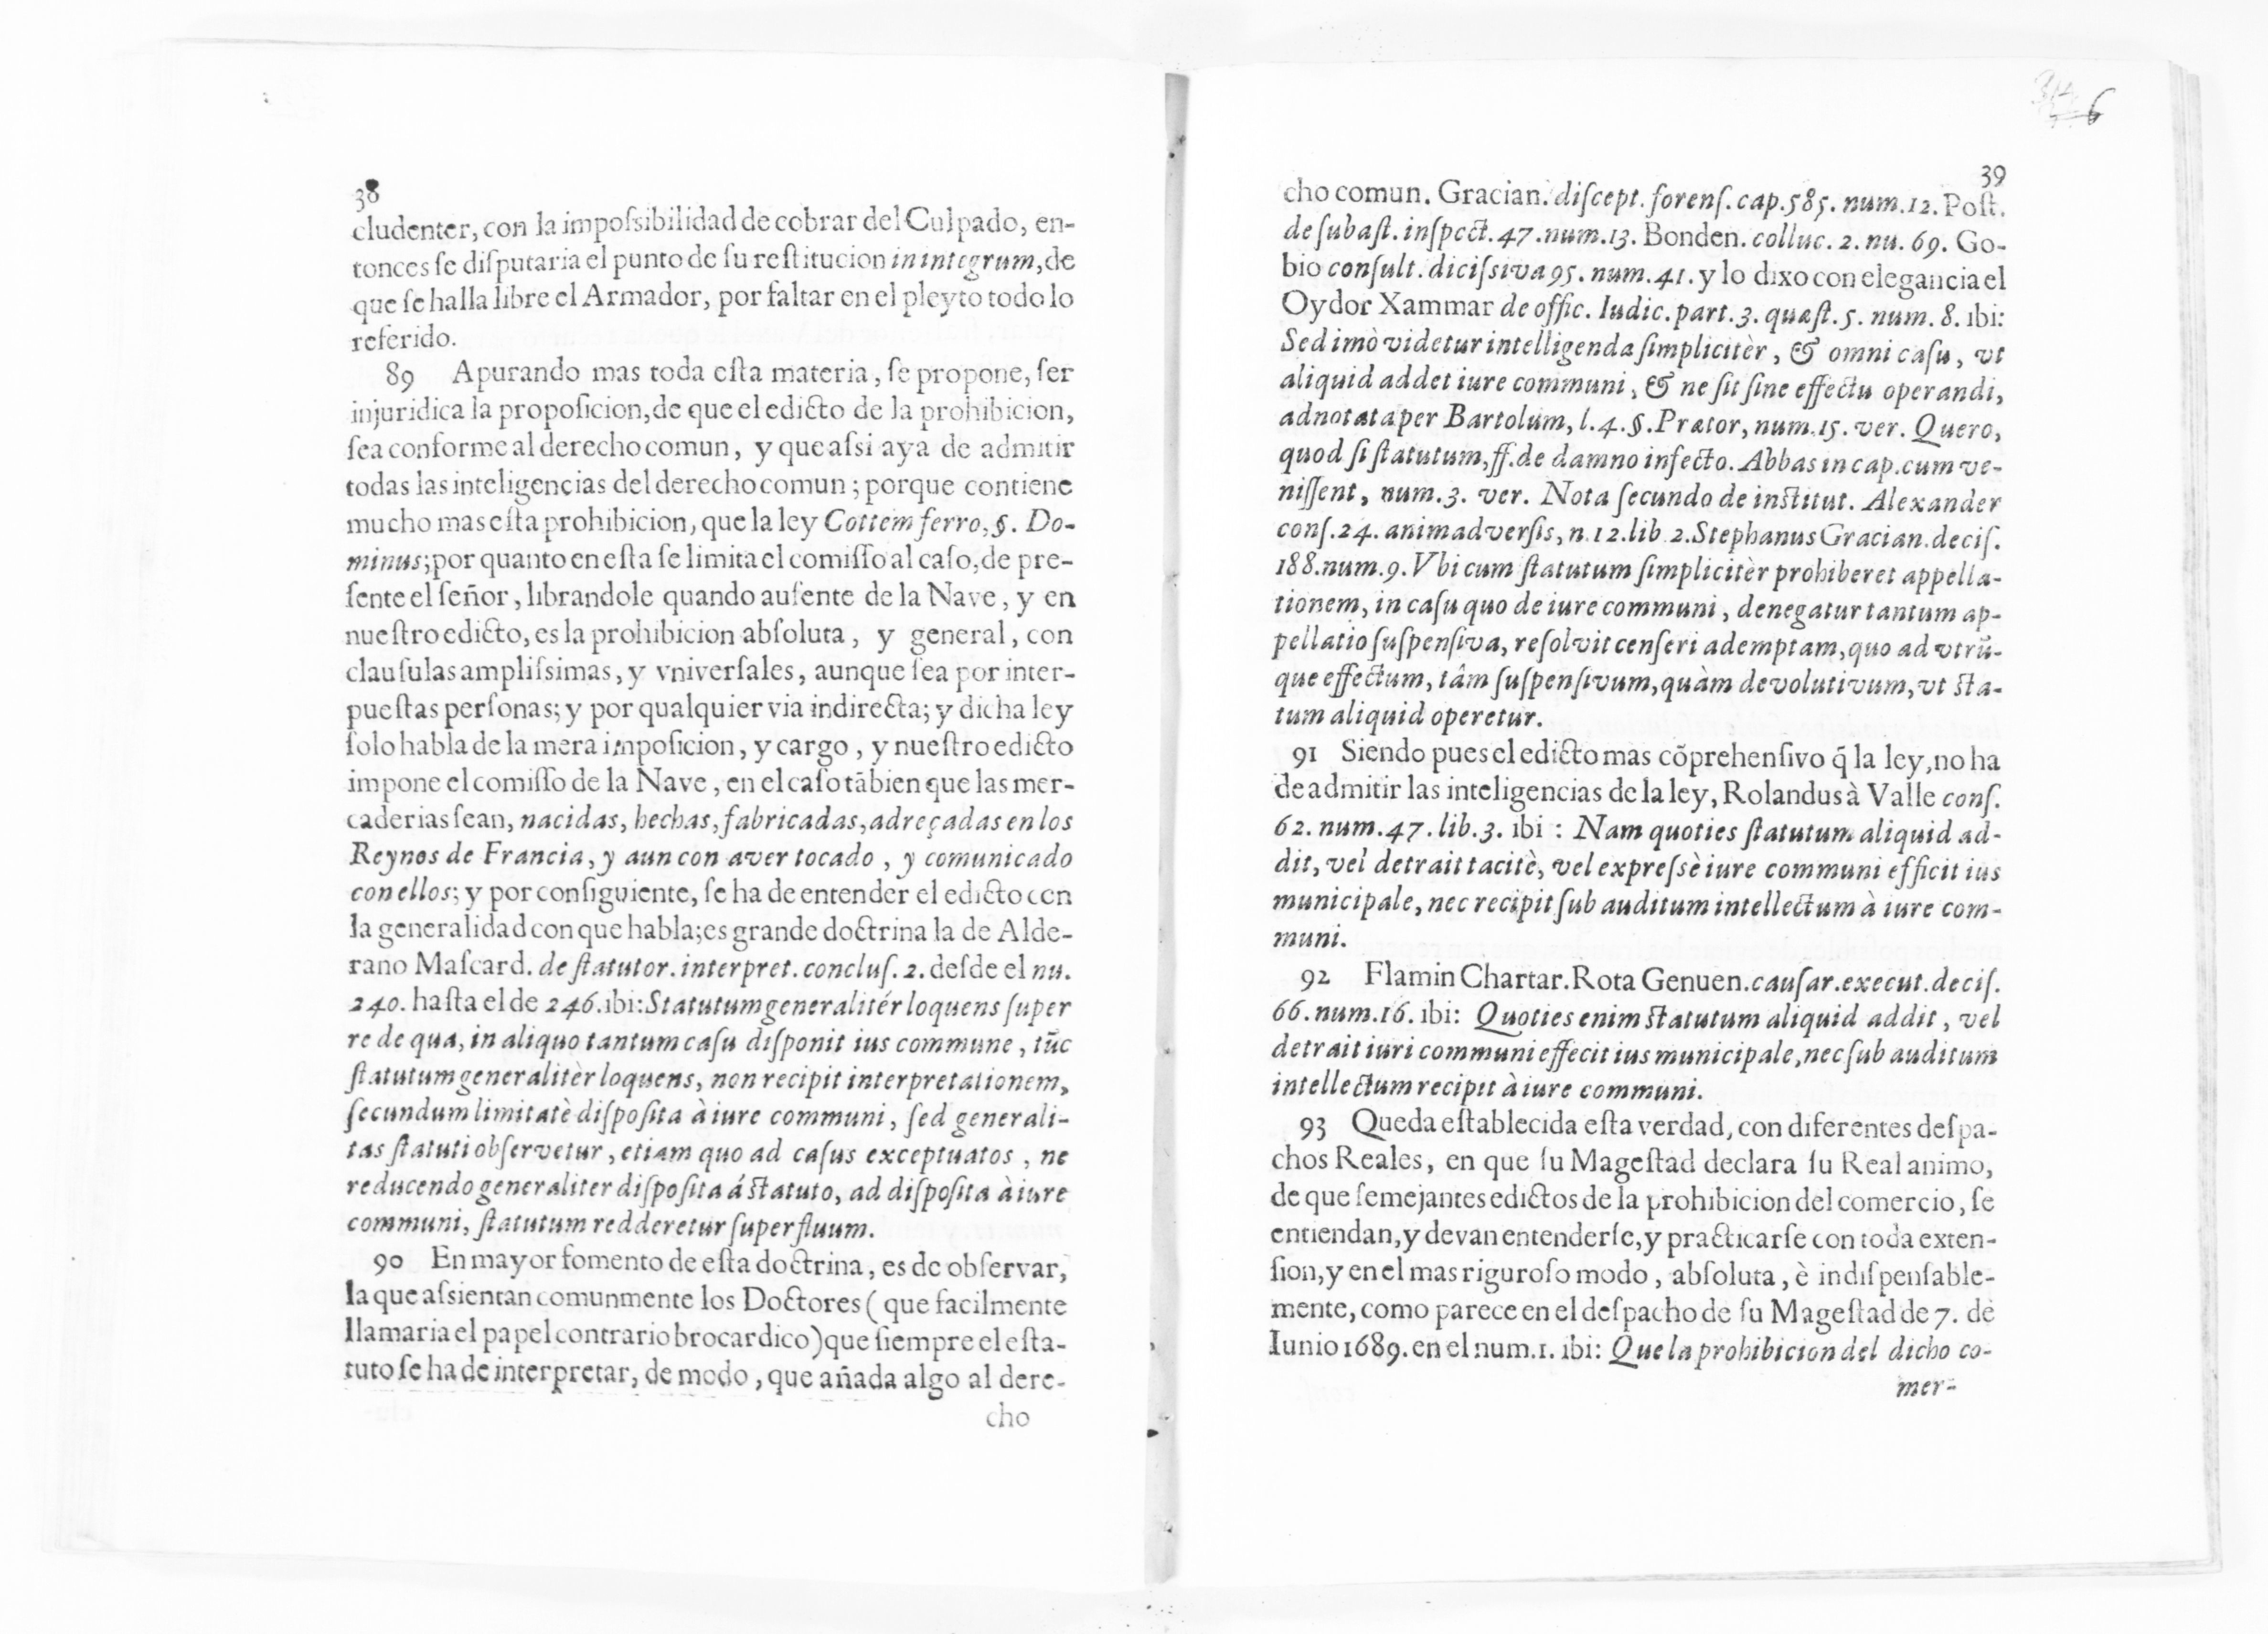 38
cludenter, con la impoſsibilidad de cobrar del Culpado, en-
tonces ſe diſputaria el punto de ſu reſtitucion in integrum, de
que ſe halla libre el Armador, por faltar en el pleyto todo lo
referido.
89 Apurando mas toda eſta materia, ſe propone, ſer
injuridica la propoſicion, de que el edicto de la prohibicion,
ſea conforme al derecho comun, y que aſsi aya de admitir
todas las inteligencias del derecho comun; porque contiene
mucho mas eſta prohibicion, que la ley Cottem ferro, §. Do-
minus; por quanto en eſta ſe limita el comiſſo al caſo, de pre-
ſente el ſeñor, librandole quando auſente de la Nave, y en
nueſtro edicto, es la prohibicion abſoluta, y general, con
clauſulas ampliſsimas, y vniverſales, aunque ſea por inter-
pueſtas perſonas; y por qualquier via indirecta; y dicha ley
ſolo habla de la mera impoſicion, y cargo, y nueſtro edicto
impone el comiſſo de la Nave, en el caſo tābien que las mer-
caderias ſean, nacidas, hechas, fabricadas, adreçadas en los
Reynos de Francia, y aun con aver tocado, y comunicado
con ellos; y por conſiguiente, ſe ha de entender el edicto con
la generalidad con que habla; es grande doctrina la de Alde-
rano Maſcard. de ſtatutor. interpret. concluſ. 2. deſde el nu.
240. haſta el de 246. ibi: Statutum generalitér loquens ſuper
re de qua, in aliquo tantum caſu diſponit ius commune, tūc
ſtatutum generalitèr loquens, non recipit interpretationem,
ſecundum limitatè diſpoſita à iure communi, ſed generali-
tas ſtatuti obſervetur, etiam quo ad caſus exceptuatos, ne
reducendo generaliter diſpoſita á ſtatuto, ad diſpoſita à iure
communi, ſtatutum redderetur ſuperfluum.
90 En mayor fomento de eſta doctrina, es de obſervar,
la que aſsientan comunmente los Doctores ( que facilmente
llamaria el papel contrario brocardico) que ſiempre el eſta-
tuto ſe ha de interpretar, de modo, que añada algo al dere-
cho
6
39
cho comun. Gracian. diſcept. forenſ. cap. 585. num. 12. Poſt.
de ſubaſt. inſpect. 47. num. 13. Bonden. colluc. 2. nu. 69. Go-
bio conſult. diciſsiva 95. num. 41. y lo dixo con elegancia el
Oydor Xammar de offic. Iudic. part. 3. quæſt. 5. num. 8. ibi:
Sed imò videtur intelligenda ſimplicitèr, & omni caſu, vt
aliquid addet iure communi, & ne ſit ſine effectu operandi,
adnotata per Bartolum, l. 4. §. Prætor, num. 15. ver. Quero,
quod ſi ſtatutum, ff. de damno infecto. Abbas in cap. cum ve-
niſſent, num. 3. ver. Nota ſecundo de inſtitut. Alexander
conſ. 24. animadverſis, n. 12. lib 2. Stephanus Gracian. deciſ.
188. num. 9. Vbi cum ſtatutum ſimplicitèr prohiberet appella-
tionem, in caſu quo de iure communi, denegatur tantum ap-
pellatio ſuſpenſiva, reſolvit cenſeri ademptam, quo ad vtrū-
que effectum, tâm ſuſpenſivum, quàm devolutivum, vt ſta-
tum aliquid operetur.
91 Siendo pues el edicto mas cōprehenſivo q̄ la ley, no ha
de admitir las inteligencias de la ley, Rolandus à Valle conſ.
62. num. 47. lib. 3. ibi : Nam quoties ſtatutum aliquid ad-
dit, vel detrait tacitè, vel expreſsè iure communi efficit ius
municipale, nec recipit ſub auditum intellectum à iure com-
muni.
92 Flamin Chartar. Rota Genuen. cauſar. execut. deciſ.
66. num. 16. ibi: Quoties enim ſtatutum aliquid addit, vel
detrait iuri communi effecit ius municipale, nec ſub auditum
intellectum recipit à iure communi.
93 Queda eſtablecida eſta verdad, con diferentes deſpa-
chos Reales, en que ſu Mageſtad declara ſu Real animo,
de que ſemejantes edictos de la prohibicion del comercio, ſe
entiendan, y devan entenderſe, y practicarſe con toda exten-
ſion, y en el mas riguroſo modo, abſoluta, è indiſpenſable-
mente, como parece en el deſpacho de ſu Mageſtad de 7. de
Iunio 1689. en el num. 1. ibi: Que la prohibicion del dicho co-
mer-